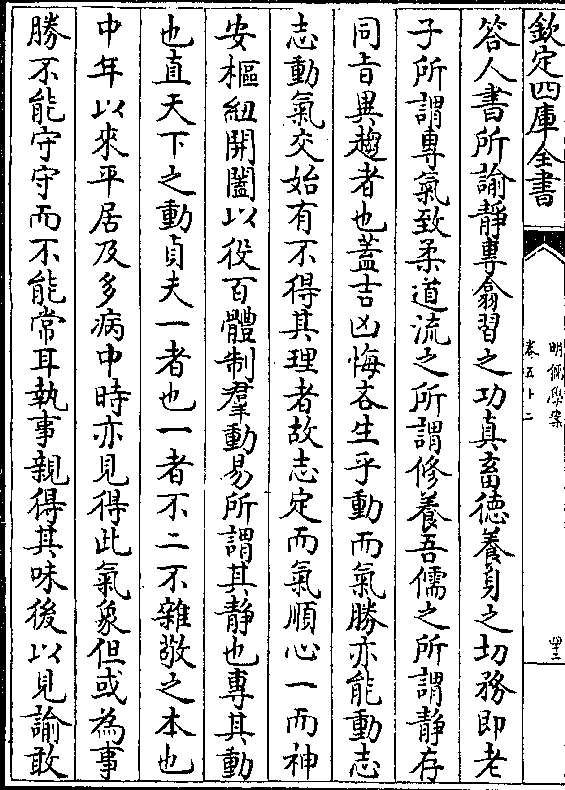 欽定四庫全書
明儒學案
卷五十二
答人書所諭靜專翕習之功真畜德養身之切務即老
子所謂專氣致柔道流之所謂修養吾儒之所謂靜存
同㫖異趨者也蓋吉凶悔吝生乎動而氣勝亦能動志
志動氣交始有不得其理者故志定而氣順心一而神
安樞紐開闔以役百體制羣動易所謂其靜也專其動
也直天下之動貞夫一者也一者不二不雜敬之本也
中年以來平居及多病中時亦見得此氣象但或為事
勝不能守守而不能常耳執事親得其味後以見諭敢